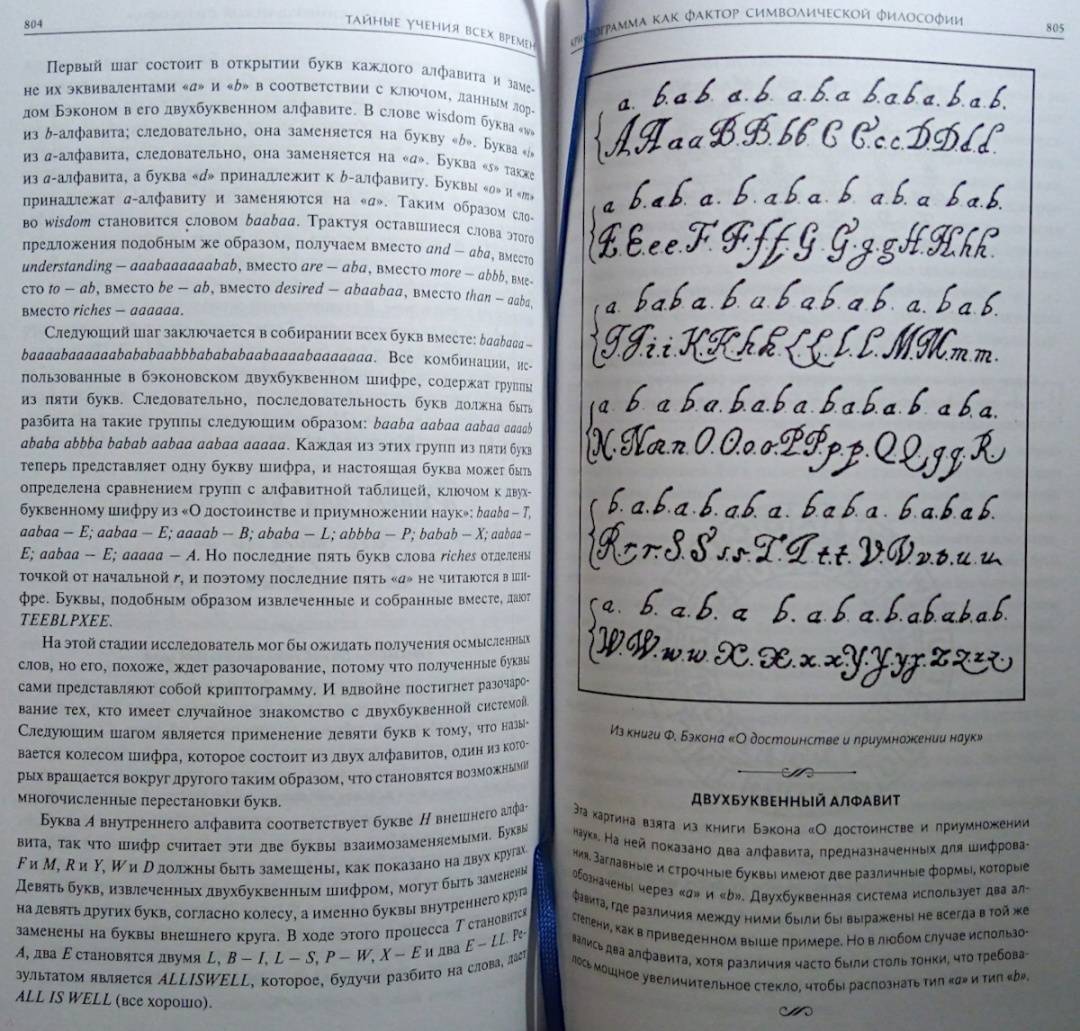 804
ТАЙНЫЕ УЧЕНИЯ ВСЕХ ВРЕМЕН
Первый шаг состоит в открытии букв каждого алфавита и заме-
не их эквивалентами «a» и «b» в соответствии с ключом, данным лор-
дом Бэконом в его двухбуквенном алфавите. В слове wisdom буква «w»
из b-алфавита; следовательно, она заменяется на букву «b». Буква «i»
из a-алфавита, следовательно, она заменяется на «a». Буква «s» также
из a-алфавита, а буква «d» принадлежит к b-алфавиту. Буквы «o» и «m»
принадлежат a-алфавиту и заменяются на «a». Таким образом сло-
во wisdom становится словом baabaa. Трактуя оставшиеся слова этого
предложения подобным же образом, получаем вместо and – aba, вместо
understanding – aaabaaaaaabab, вместо are – aba, вместо more – abbb, вме-
сто to – ab, вместо be – ab, вместо desired – abaabaa, вместо than – aaba,
вместо riches – aaaaaa.
Следующий шаг заключается в собирании всех букв вместе: baabaaa –
baaaabaaaaaabababaabbbabababaabaaaabaaaaaaa. Все комбинации, ис-
пользованные в бэконовском двухбуквенном шифре, содержат группы
из пяти букв. Следовательно, последовательность букв должна быть
разбита на такие группы следующим образом: baaba aabaa aabaa aaaab
ababa abbba babab aabaa aabaa aaaaa. Каждая из этих групп из пяти букв
теперь представляет одну букву шифра, и настоящая буква может быть
определена сравнением групп с алфавитной таблицей, ключом к двух-
буквенному шифру из «О достоинстве и приумножении наук»: baaba – T,
aabaa – E; aabaa – E; aaaab – B; ababa – L; abbba – P; babab – X; aabaa –
E; aabaa – E; aaaaa – A. Но последние пять букв слова riches отделены
точкой от начальной r, и поэтому последние пять «a» не читаются в ши-
фре. Буквы, подобным образом извлеченные и собранные вместе, дают
TEEBLPXEE.
На этой стадии исследователь мог бы ожидать получения осмысленных
слов, но его, похоже, ждет разочарование, потому что полученные буквы
сами представляют собой криптограмму. И вдвойне постигнет разочаро-
вание тех, кто имеет случайное знакомство с двухбуквенной системой.
Следующим шагом является применение девяти букв к тому, что назы-
вается колесом шифра, которое состоит из двух алфавитов, один из кото-
рых вращается вокруг другого таким образом, что становятся возможными
многочисленные перестановки букв.
Буква A внутреннего алфавита соответствует букве H внешнего алфа-
вита, так что шифр считает эти две буквы взаимозаменяемыми. Буквы
F и M, R и Y, W и D должны быть замещены, как показано на двух кругах.
Девять букв, извлеченных двухбуквенным шифром, могут быть заменены
на девять других букв, согласно колесу, а именно буквы внутреннего круга
заменены на буквы внешнего круга. В ходе этого процесса T становится
A, два E становятся двумя L, B – I, L – S, P – W, X – E и два E – LL. Ре-
зультатом является ALLISWELL, которое, будучи разбито на слова, дает
ALL IS WELL (все хорошо).
КРИПТОГРАММА КАК ФАКТОР СИМВОЛИЧЕСКОЙ ФИЛОСОФИИ
805
a. b.a b. a.b. a.b.a b.a.b.a. b.a.b.
A.A a a B.B.b b C C c.c.D.D.d.d.
a b.a b. a. b a b a.b a. b. a b a.b.
E.E.e e.F. F.f f.G. G.g.g.H.H.h h.
a. b a b a b. a. b a b. a b. a b. a. b a. b.
I.I.i i.K.K.k k.L L.l.l.M.M.m.m.
a b a b a.b.a b a. b.a b.a b. a b a.
N.N n n.O.O.o o.P.P.p p.Q.Q.q q.R
b. a.b.a.b. a b. a. b a b a. b.a b.a b.
R r r.S.S s s.T.T t.t.V.V.v.v.u.u
a. b. a.b. a b. a. b a.b.a b.a b.a.b.
W.W.w w.X.X.x.x.Y.Y.y y.Z.Z.z z.
Из книги Ф. Бэкона «О достоинстве и приумножении наук»
ДВУХБУКВЕННЫЙ АЛФАВИТ
Эта картина взята из книги Бэкона «О достоинстве и приумножении
наук». На ней показано два алфавита, предназначенных для шифрова-
ния. Заглавные и строчные буквы имеют две различные формы, которые
обозначены через «a» и «b». Двухбуквенная система использует два ал-
фавита, где различия между ними были бы выражены не всегда в той же
степени, как в приведенном выше примере. Но в любом случае использо-
вались два алфавита, хотя различия часто были столь тонки, что требова-
лось мощное увеличительное стекло, чтобы распознать тип «a» и тип «b».